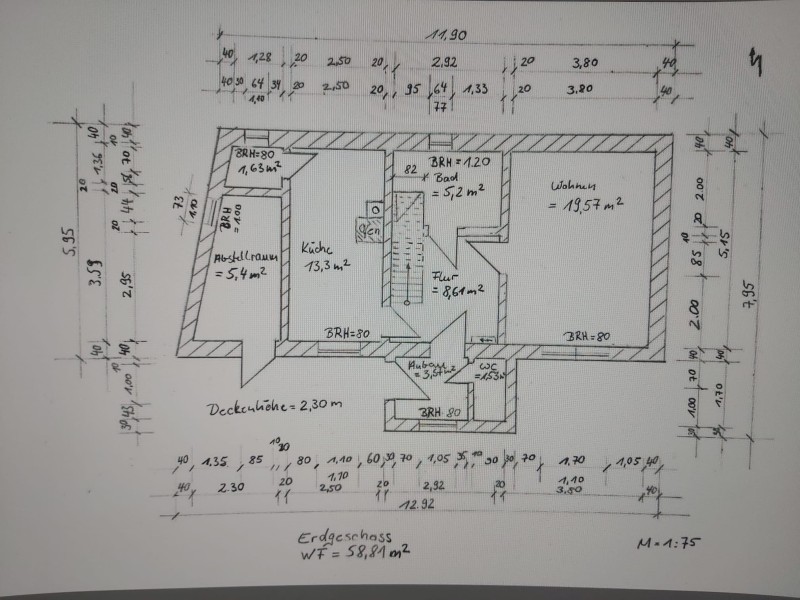 11,90
40 1,28 20 2,50 20 2,92 20 3,80 40
40 30 64 34 20 2,50 20 95 64 1,33 20 3,80 40
1,10 77
5,95
40 1,36 20 3,59 40
10 40 70 56 20 44 20 2,95 40
10 1,00 43 30
73
1.10
BRH=80
1,63m²
BRH
=1.00
Abstellraum
=5,4m²
Küche
13,3m²
BRH=80
82
BRH=1.20
Bad
=5,2m²
Flur
=8,61m²
Wohnen
=19,57m²
BRH=80
Anbau
=3,57m²
WC
=1,53m²
BRH 80
Deckenhöhe=2,30m
40 2.00 20 10 85 2.00 40 70 1.00 30
40 5,15 40 1,70 30
7,95
40 1.35 85 10 20 80 1,10 60 30 70 1,05 35 10 90 30 70 1,70 1,05 40
1,10
1,10
40 2.30 20 2,50 20 2,92 20 3.80 40
12.92
Erdgeschoss
WF=58,81m²
M=1:75